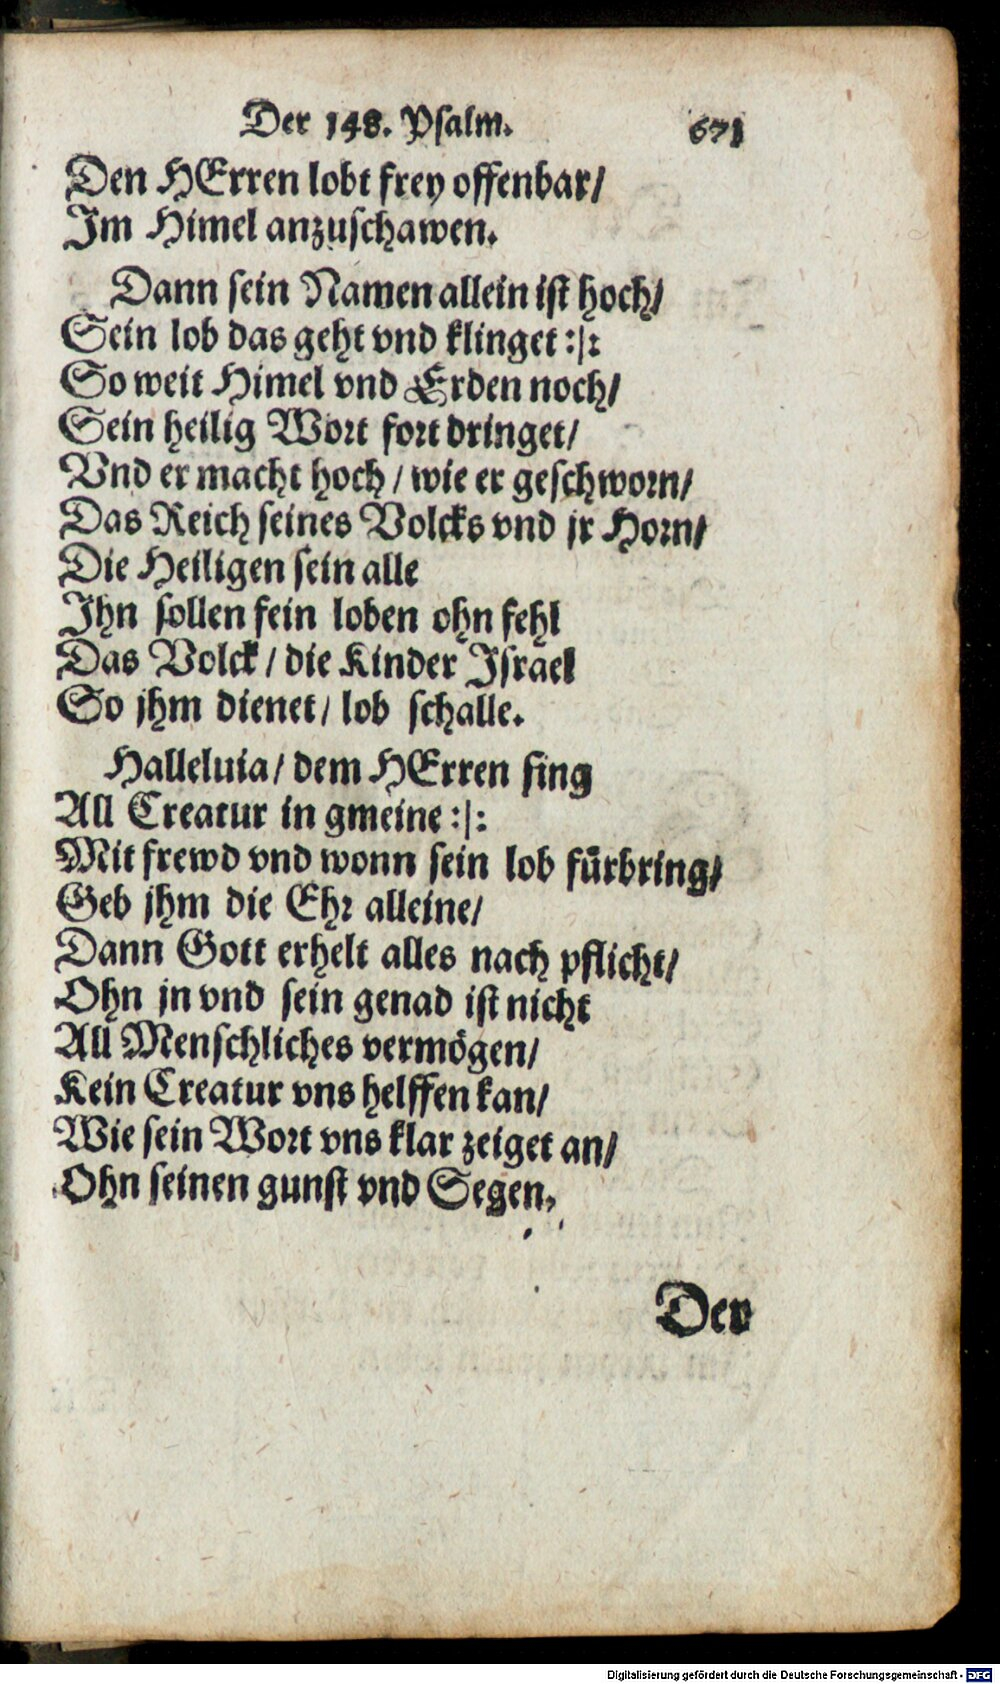 Der 148. Psalm. 671
Den HErren lobt frey offenbar/
Im Himel anzuschawen.
Dann sein Namen allein ist hoch/
Sein lob das geht vnd klinget :|:
So weit Himel vnd Erden noch/
Sein heilig Wort fort dringet/
Vnd er macht hoch / wie er geschworn/
Das Reich seines Volcks vnd jr Horn/
Die Heiligen sein alle
Ihn sollen fein loben ohn fehl
Das Volck / die Kinder Israel
So jhm dienet / lob schalle.
Halleluia / dem HErren sing
All Creatur in gmeine :|:
Mit frewd vnd wonn sein lob fürbring/
Geb jhm die Ehr alleine/
Dann Gott erhelt alles nach pflicht/
Ohn jn vnd sein genad ist nicht
All Menschliches vermögen/
Kein Creatur vns helffen kan/
Wie sein Wort vns klar zeiget an/
Ohn seinen gunst vnd Segen.
Der
Digitalisierung gefördert durch die Deutsche Forschungsgemeinschaft - DFG